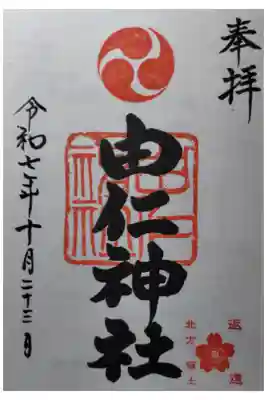 奉拝
由仁神社
令和七年十月二十三日
返還
北方領土